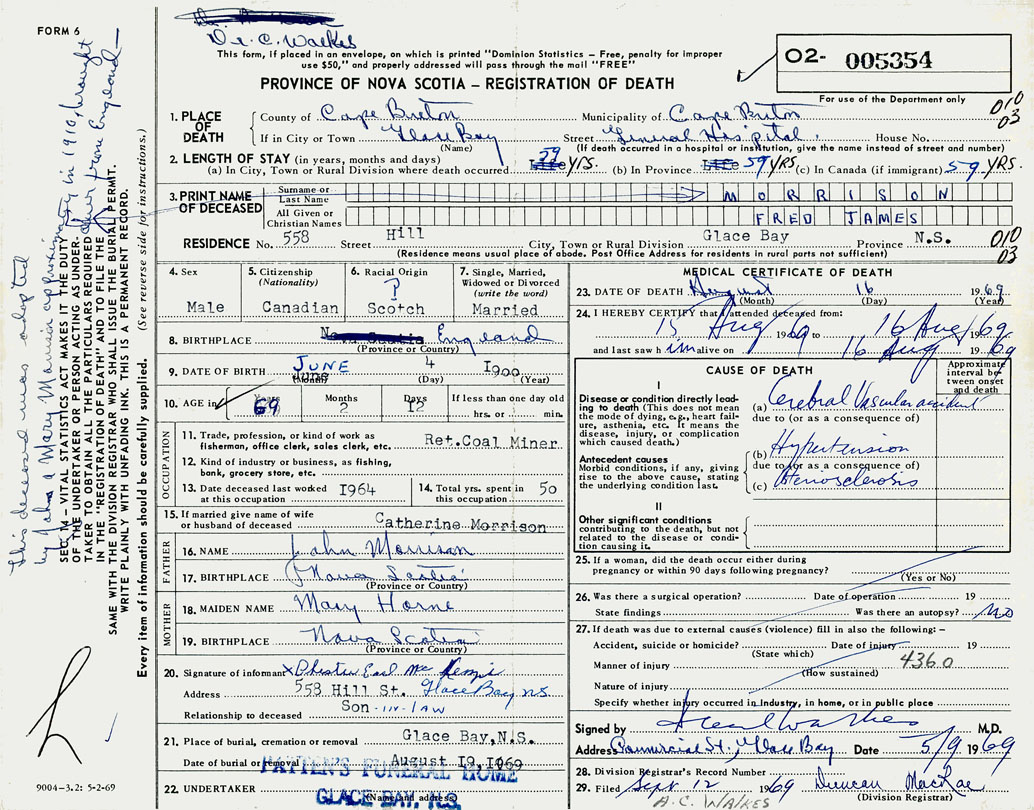 FORM 6
Dr. C. Walkes
This form, if placed in an envelope, on which is printed "Dominion Statistics – Free, penalty for improper
use $50," and properly addressed will pass through the mail "FREE"
PROVINCE OF NOVA SCOTIA – REGISTRATION OF DEATH
O2- 005354
For use of the Department only
010
03
1. PLACE OF DEATH
County of Cape Breton Municipality of Cape Breton
If in City or Town Glace Bay Street General Hospital. House No.
(Name) (If death occurred in a hospital or institution, give the name instead of street and number)
2. LENGTH OF STAY (in years, months and days)
(a) In City, Town or Rural Division where death occurred 59 YRS. (b) In Province 59 YRS. (c) In Canada (if immigrant) 59 YRS.
3. PRINT NAME OF DECEASED
Surname or Last Name MORRISON
All Given or Christian Names FRED JAMES
RESIDENCE No. 558 Street Hill City, Town or Rural Division Glace Bay Province N.S.
(Residence means usual place of abode. Post Office Address for residents in rural parts not sufficient)
010
03
4. Sex
Male
5. Citizenship
(Nationality)
Canadian
6. Racial Origin
?
Scotch
7. Single, Married,
Widowed or Divorced
(write the word)
Married
8. BIRTHPLACE England
(Province or Country)
9. DATE OF BIRTH JUNE 4 1900
(Month) (Day) (Year)
10. AGE in Years 69 Months 2 Days 12 If less than one day old
hrs. or min.
OCCUPATION
11. Trade, profession, or kind of work as
fisherman, office clerk, sales clerk, etc. Ret.Coal Miner
12. Kind of industry or business, as fishing,
bank, grocery store, etc.
13. Date deceased last worked
at this occupation 1964
14. Total yrs. spent in
this occupation 50
15. If married give name of wife
or husband of deceased Catherine Morrison
FATHER
16. NAME John Morrison
17. BIRTHPLACE Nova Scotia
(Province or Country)
MOTHER
18. MAIDEN NAME Mary Horne
19. BIRTHPLACE Nova Scotia
(Province or Country)
20. Signature of informant x Chester Earl McKenzie
Address 558 Hill St. Glace Bay N.S.
Relationship to deceased Son-in-law
21. Place of burial, cremation or removal Glace Bay,N.S.
Date of burial or removal August 19,1969
22. UNDERTAKER PATTEN'S FUNERAL HOME
(Name and address) GLACE BAY, N.S.
MEDICAL CERTIFICATE OF DEATH
23. DATE OF DEATH August 16 1969
(Month) (Day) (Year)
24. I HEREBY CERTIFY that I attended deceased from:
15 Aug 1969 to 16 Aug 1969
and last saw him alive on 16 Aug 1969
CAUSE OF DEATH
Approximate
interval be-
tween onset
and death
I
Disease or condition directly lead-
ing to death (This does not mean
the mode of dying, e.g., heart fail-
ure, asthenia, etc. It means the
disease, injury, or complication
which caused death.)
(a) Cerebral Vascular accident
due to (or as a consequence of)
Antecedent causes
Morbid conditions, if any, giving
rise to the above cause, stating
the underlying condition last.
(b) Hypertension
due to (or as a consequence of)
(c) Atherosclerosis
II
Other significant conditions
contributing to the death, but not
related to the disease or condi-
tion causing it.
25. If a woman, did the death occur either during
pregnancy or within 90 days following pregnancy?
(Yes or No)
26. Was there a surgical operation? Date of operation 19
State findings Was there an autopsy? No
27. If death was due to external causes (violence) fill in also the following: –
Accident, suicide or homicide? Date of injury 19
(State which)
Manner of injury 4360
(How sustained)
Nature of injury
Specify whether injury occurred in industry, in home, or in public place
Signed by Walkes M.D.
Address Commercial St., Glace Bay Date 5/9 1969
28. Division Registrar's Record Number
29. Filed Sept 12 1969 Duncan MacRae
(Division Registrar)
A.C. WALKES
This deceased was adopted
by John & Mary Morrison approximately in 1910, brought
over from England
SEC. 14 – VITAL STATISTICS ACT MAKES IT THE DUTY
OF THE UNDERTAKER OR PERSON ACTING AS UNDER-
TAKER TO OBTAIN ALL THE PARTICULARS REQUIRED
IN THE "REGISTRATION OF DEATH" AND TO FILE THE
SAME WITH THE DIVISION REGISTRAR WHO SHALL ISSUE THE BURIAL PERMIT.
WRITE PLAINLY WITH UNFADING INK. THIS IS A PERMANENT RECORD.
Every item of information should be carefully supplied. (See reverse side for instructions.)
9004–3.2: 5-2-69